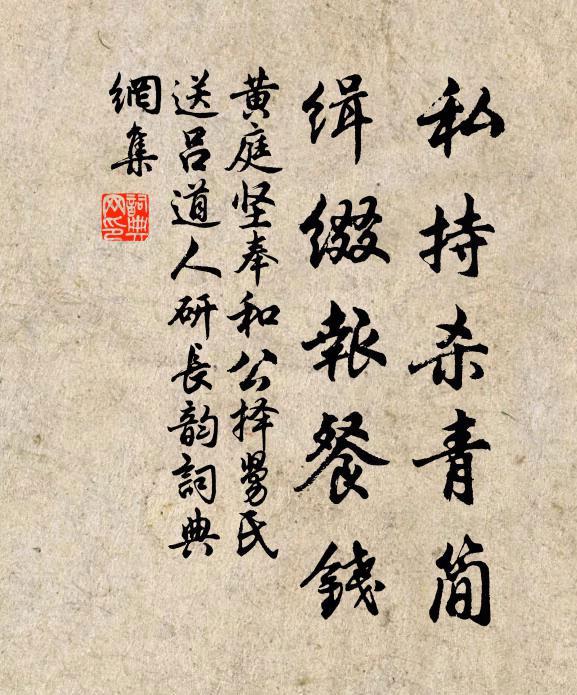 私持杀青简
缉缀報餐錢
黄庭坚奉和公择舅氏
送吕道人研長韵詞典
網集
詞典網印